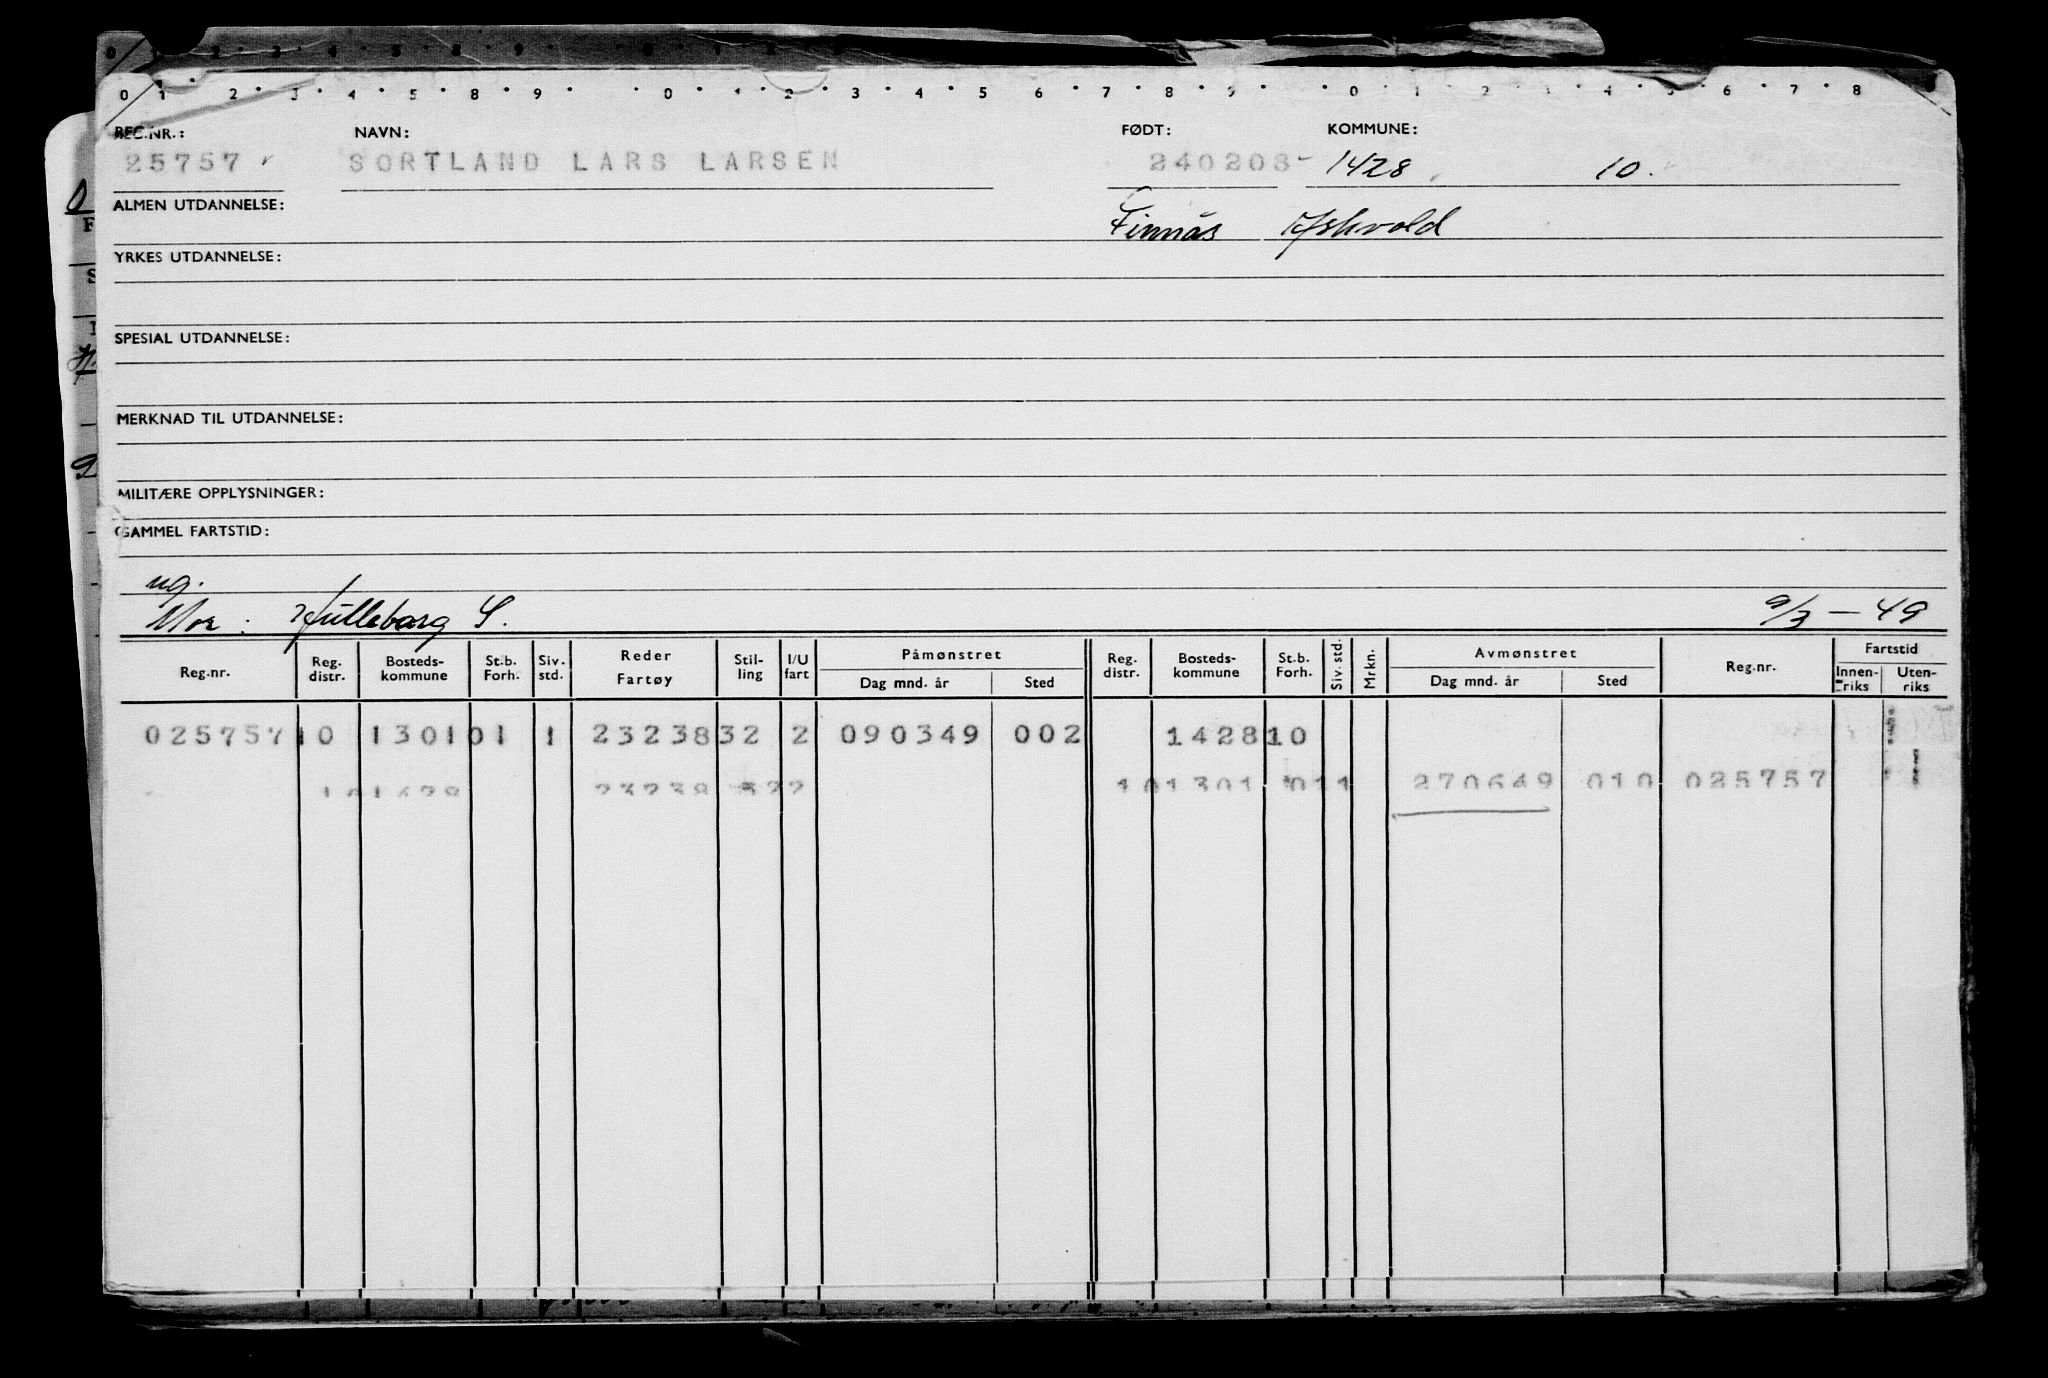 0 1 2 3 4 5 8 9 0 1 2 3 4 5 6 7 8 9 0 1 2 3 4 5 6 7 8
REG.NR.: NAVN: FØDT: KOMMUNE:
25757 SORTLAND LARS LARSEN 240208 1428 10.
ALMEN UTDANNELSE: Finnås Askvold
YRKES UTDANNELSE:
SPESIAL UTDANNELSE:
MERKNAD TIL UTDANNELSE:
MILITÆRE OPPLYSNINGER:
GAMMEL FARTSTID:
ug.
Mor: Hulleborg S. 9/3 - 49
Reg.nr. Reg. distr. Bosteds-kommune St.b. Forh. Siv. std. Reder Fartøy Stil-ling I/U fart Påmønstret Dag mnd. år Sted Reg. distr. Bosteds-kommune St.b. Forh. Siv. std. Mrkn. Avmønstret Dag mnd. år Sted Reg.nr. Fartstid Innen-riks Uten-riks
025757 10 1301 01 1 23238 32 2 090349 002 1428 10
10 1428 23238 32 2 10 1301 01 1 270649 010 025757